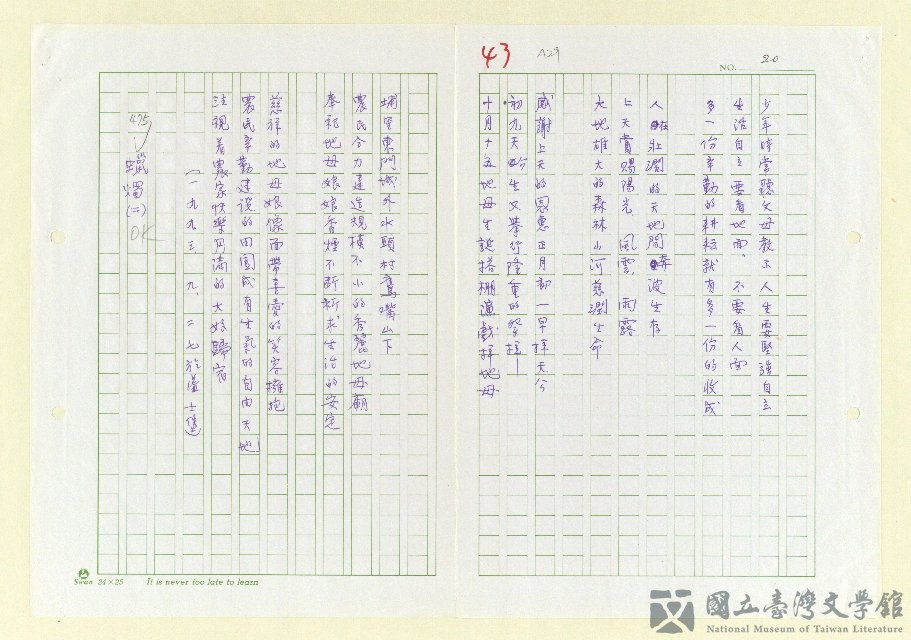 43
A29
NO. 20
少年時常聽父母教示人生要堅強自立
生活自立要看地面、不要看人面
多一份辛勤的耕耘就有多一份的收成
人在壯濶的天地間奔波生存
上天賞賜陽光、風雲、雨露
大地雄大的森林山河慈潤生命
感謝上天的恩惠正月初一早拜天公
初九天公生又舉行隆重的祭拜—
十月十五地母生誕搭棚演戲拜地母
埔里東門城外水頭村鷹嘴山下
農民合力建造規模不小的秀麗地母廟
奉祀地母娘娘香煙不斷祈求生活的安定
慈祥的地母娘像面帶喜愛的笑容擁抱
農民辛勤建設的田園成有生氣的自由天地!
注視着農家快樂圓滿的大姑歸宿
(一九九三、九、二七於
475
蠟燭(二)
OK
Swan 24×25 It is never too late to learn
國立臺灣文學館
National Museum of Taiwan Literature